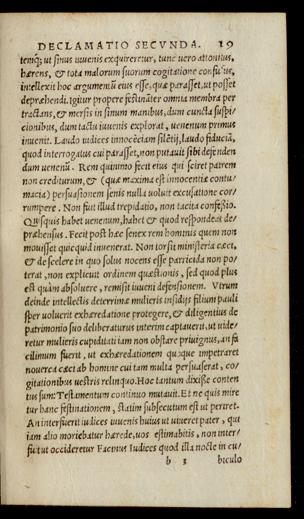 DECLAMATIO SECVNDA. 19
teniq; ut sinus iuuenis exquireretur, tunc uero attonitus,
hærens, & tota malorum suorum cogitatione confusus,
intellexit hoc argumentũ eius esse, quæ parasset, ut posset
depræhendi. Igitur propere festinãter omnia membra per
tractans, & mersis in sinum manibus, dum cuncta suspi-
cionibus, dum tactu iuuenis explorat, uenenum primus
inuenit. Laudo iudices innocẽtiam silẽtij, laudo fiduciã,
quod interrogatus cui parasset, non putauit sibi defenden
dum uenenũ. Rem quinimo fecit eius qui sciret patrem
non crediturum, & (quæ maxima est innocentiæ contu-
macia) persuasionem jenis nulla uoluit excusatione cor-
rumpere. Non fuit illud trepidatio, non tacita confessio.
Quisquis habet uenenum, habet & quod respondeat de-
præhensus. Fecit post hæc senex rem hominis quem non
mouisset quicquid inuenerat. Non torsit ministeria cæci,
& de scelere in quo solus nocens esse parricida non po-
terat, non explicuit ordinem quæstionis, sed quod plus
est quàm absoluere, remisit iuueni defensionem. Vtrum
deinde intellectis deterrimæ mulieris insidijs filium pauli
sper uoluerit exhæredatione protegere, & diligentius de
patrimonio suo deliberaturus interim captauerit, ut uide-
retur mulieris cupiditati iam non obstare priuignus, an fa
cilimum fuerit, ut exhæredationem quoque impetraret
nouerca cæci ab homine cui tam multa persuaserat, co-
gitationibus uestris relinquo. Hoc tantum dixisse conten
tus sum: Testamentum continuo mutauit. Et ne quis mire
tur hanc festinationem, statim subsecutum est ut periret.
An interfuerit iudices iuuenis huius ut uiueret pater, qui
iam alio moriebatur hærede, uos estimabitis, non inter-
fuit ut occideretur Facinus Iudices quod illa nocte in cu-
b 3 biculo